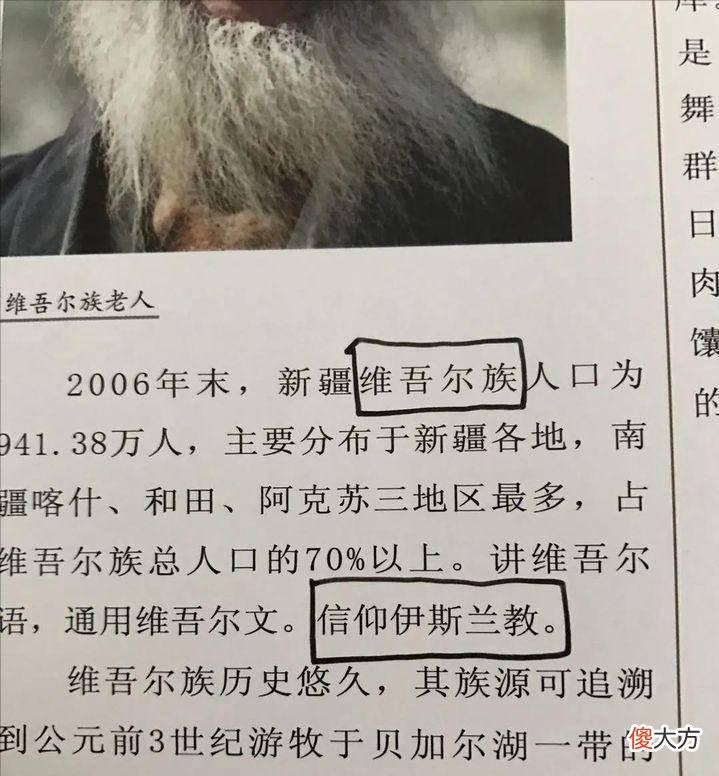 维吾尔族老人
2006年末，新疆维吾尔族人口为
941.38万人，主要分布于新疆各地，南
疆喀什、和田、阿克苏三地区最多，占
维吾尔族总人口的70%以上。讲维吾尔
语，通用维吾尔文。信仰伊斯兰教。
维吾尔族历史悠久，其族源可追溯
到公元前3世纪游牧于贝加尔湖一带的
是
舞
群
日
肉
馕
的
傻大方